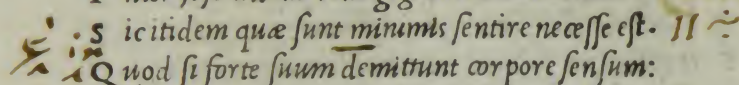 S ic itidem quæ ſunt minimis ſentire neceſſe eſt.
Q uod ſi forte ſuum demittunt corpore ſenſum: